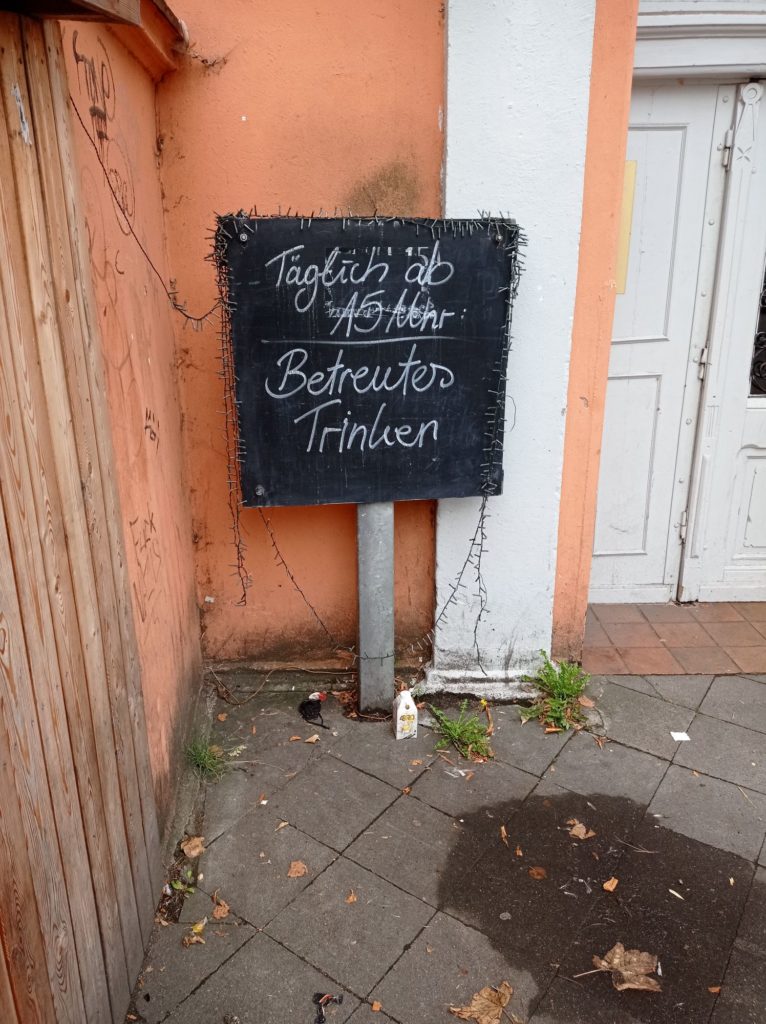 Täglich ab
15 Uhr:
Betreutes
Trinken